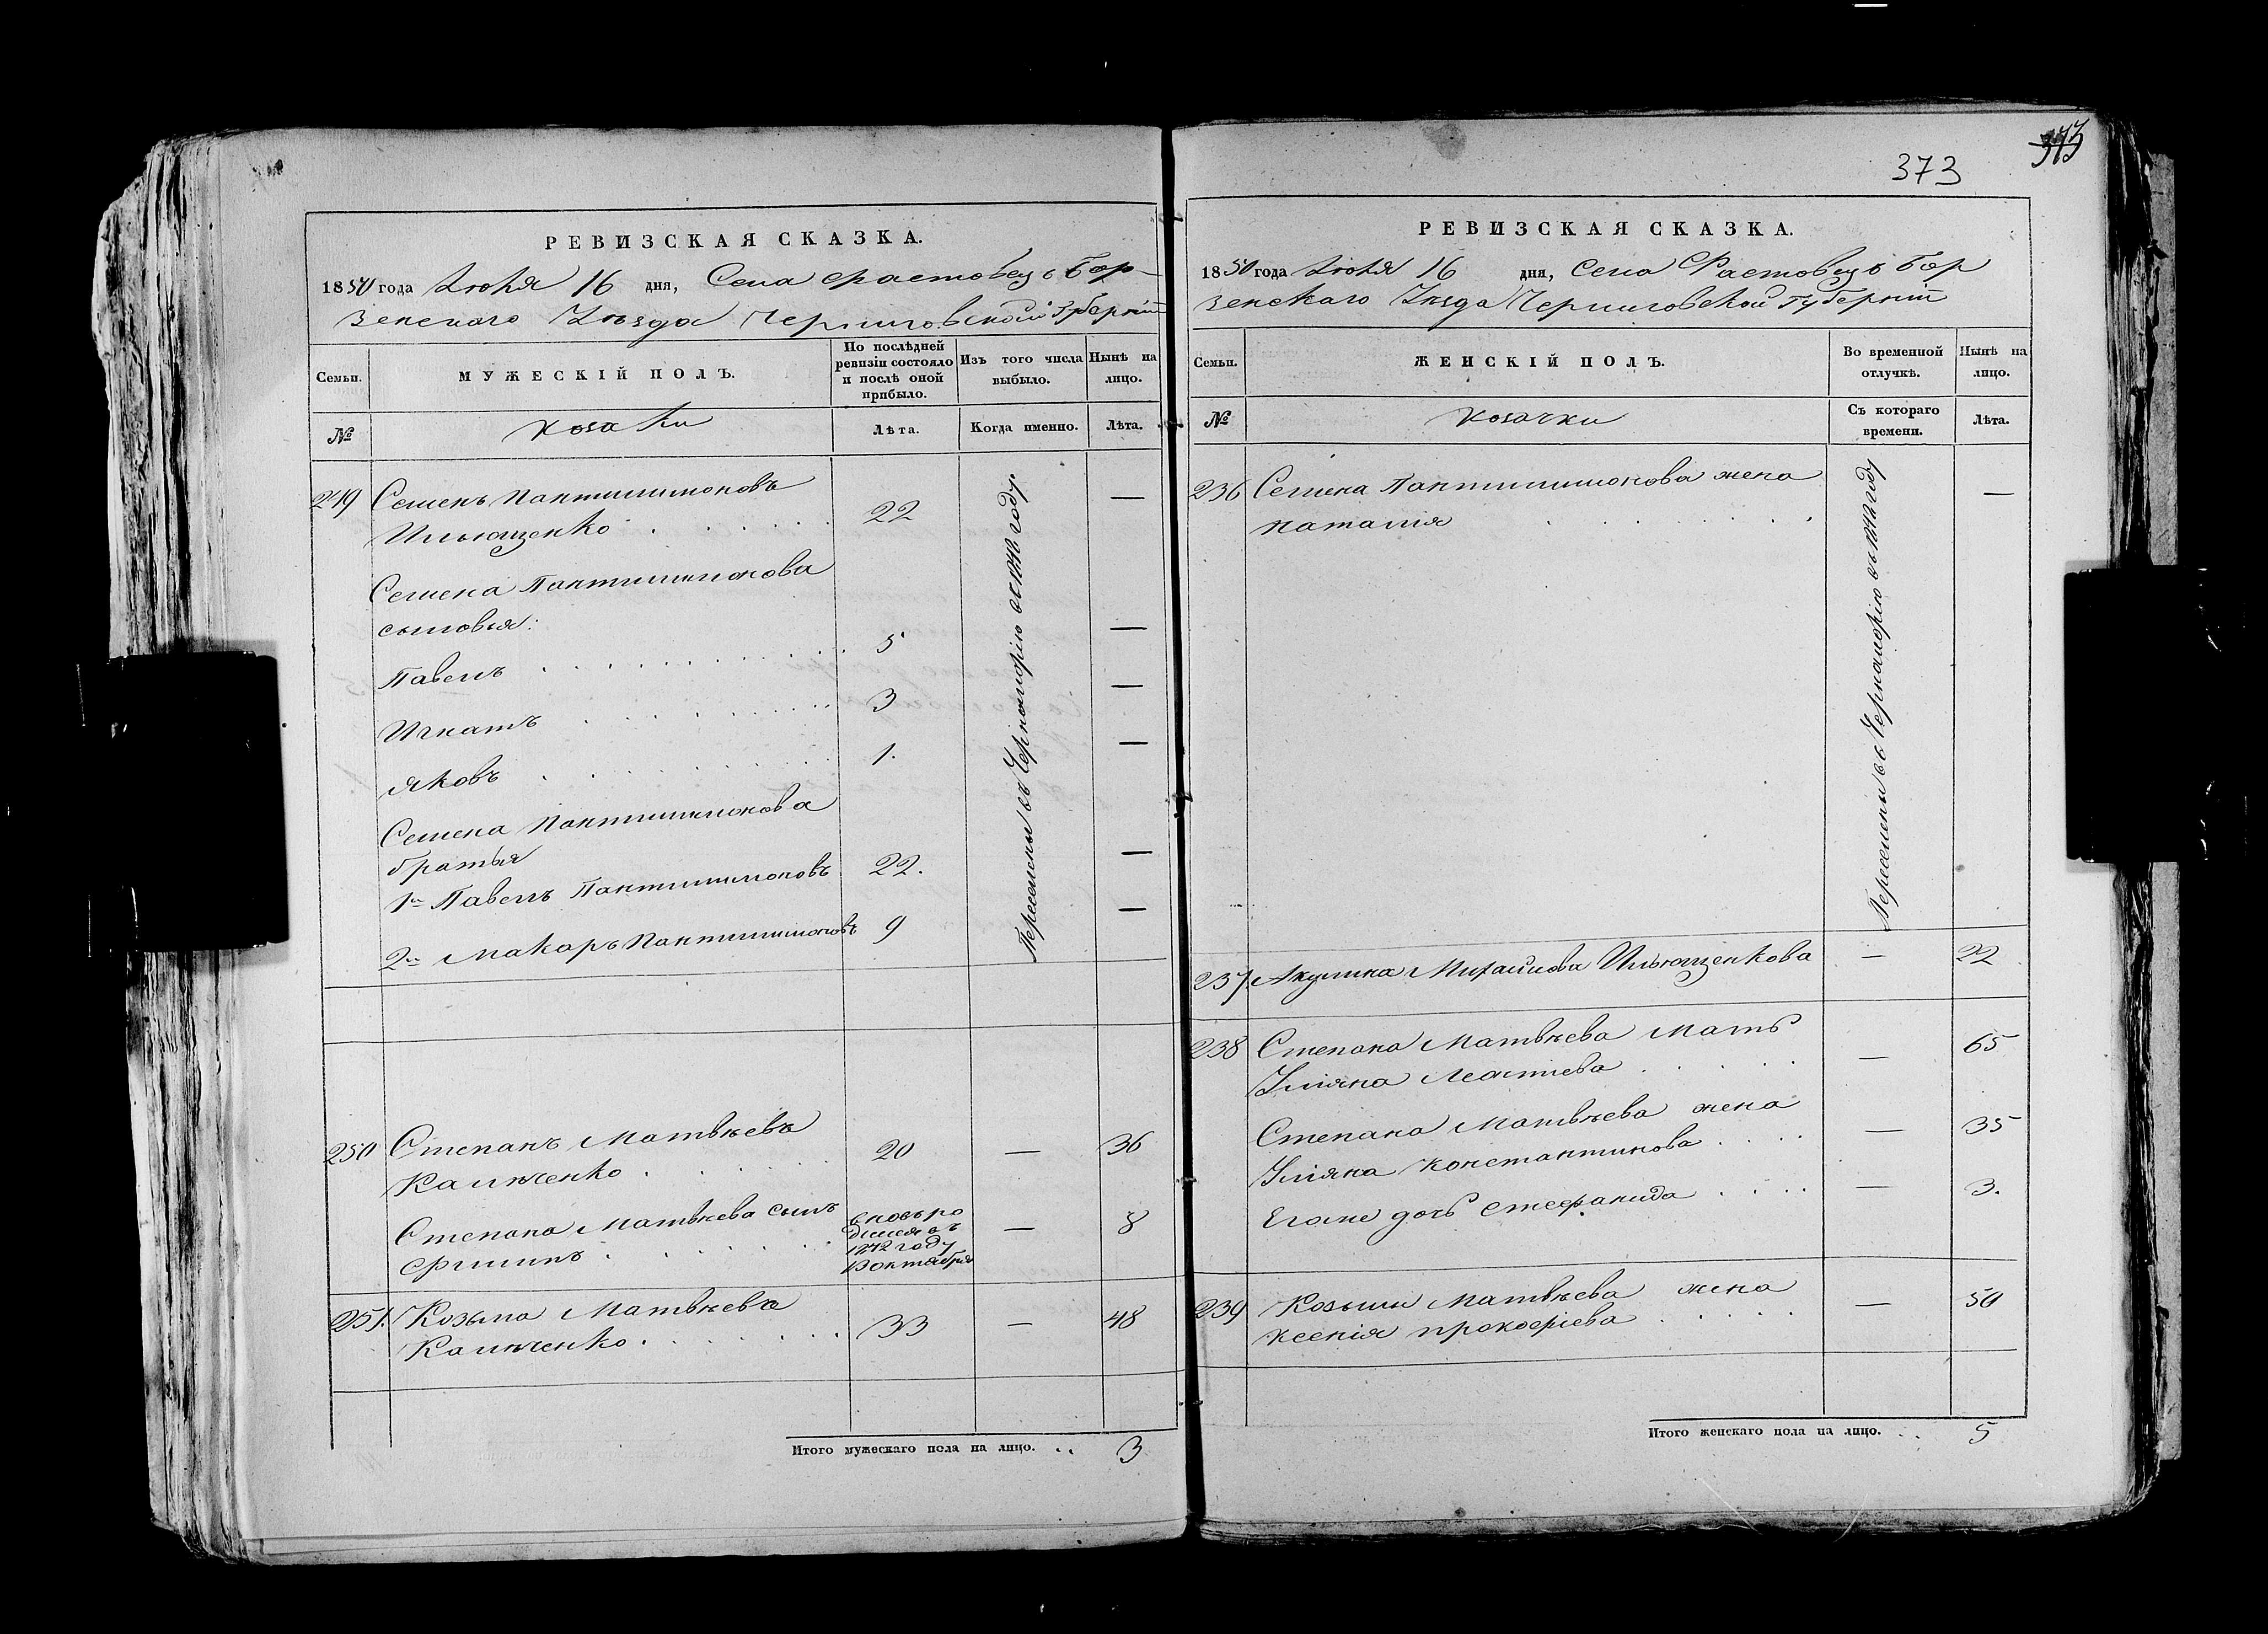 РЕВИЗСКАЯ СКАЗКА.
1850 года Июля 16 дня, Села Фастовецъ Бор-
зенскаго Уѣзда Черниговской Губерніи
Семьи.
МУЖЕСКІЙ ПОЛЪ.
По послѣдней
ревизіи состояло
и послѣ оной
прибыло.
Изъ того числа
выбыло.
Нынѣ на
лицо.
№
козаки
Лѣта.
Когда именно.
Лѣта.
249 Семенъ Пантилимоновъ
Ильющенко . . . . . . 22 —
Семена Пантилимонова
сыновья:
Павелъ . . . . . . . . . . 5 —
Игнатъ . . . . . . . . . 3 —
Яковъ . . . . . . . . . 1. —
Семена Пантилимонова
братья
1й Павелъ Пантилимоновъ 22. —
2й Макаръ Пантилимоновъ 9 —
Переселены въ Черноморію году
250 Степанъ Матвѣевъ
Каличенко . . . . . . 20 — 36
Степана Матвѣева сынъ
Филипъ . . . . . . . — 8
вновь ро
дился въ
1842 году
октября
251. Козьма Матвѣевъ
Каличенко . . . . . . . 33 — 48
Итого мужескаго пола на лицо. . . 3
373
РЕВИЗСКАЯ СКАЗКА.
1850 года Июля 16 дня, Села Фастовецъ Бор
зенскаго Уѣзда Черниговской Губерніи
Семьи.
ЖЕНСКІЙ ПОЛЪ.
Во временной
отлучкѣ.
Нынѣ на
лицо.
№
козачки
Съ котораго
времени.
Лѣта.
236 Семена Пантилимонова жена
Наталія . . . . . . —
Переселены въ Черноморію въ году
237. Акулина Ильющенкова — 22
238 Степана Матвѣева Мать
Уліяна Леонтіева . . . . . — 65
Степана Матвѣева жена
Уліяна Константинова . . . . — 35
Егоже дочь Стефанида . . . . — 3.
239 Козьмы Матвѣева жена
Ксенія Прокофіева . . . . . — 50
Итого женскаго пола на лицо. . . 5